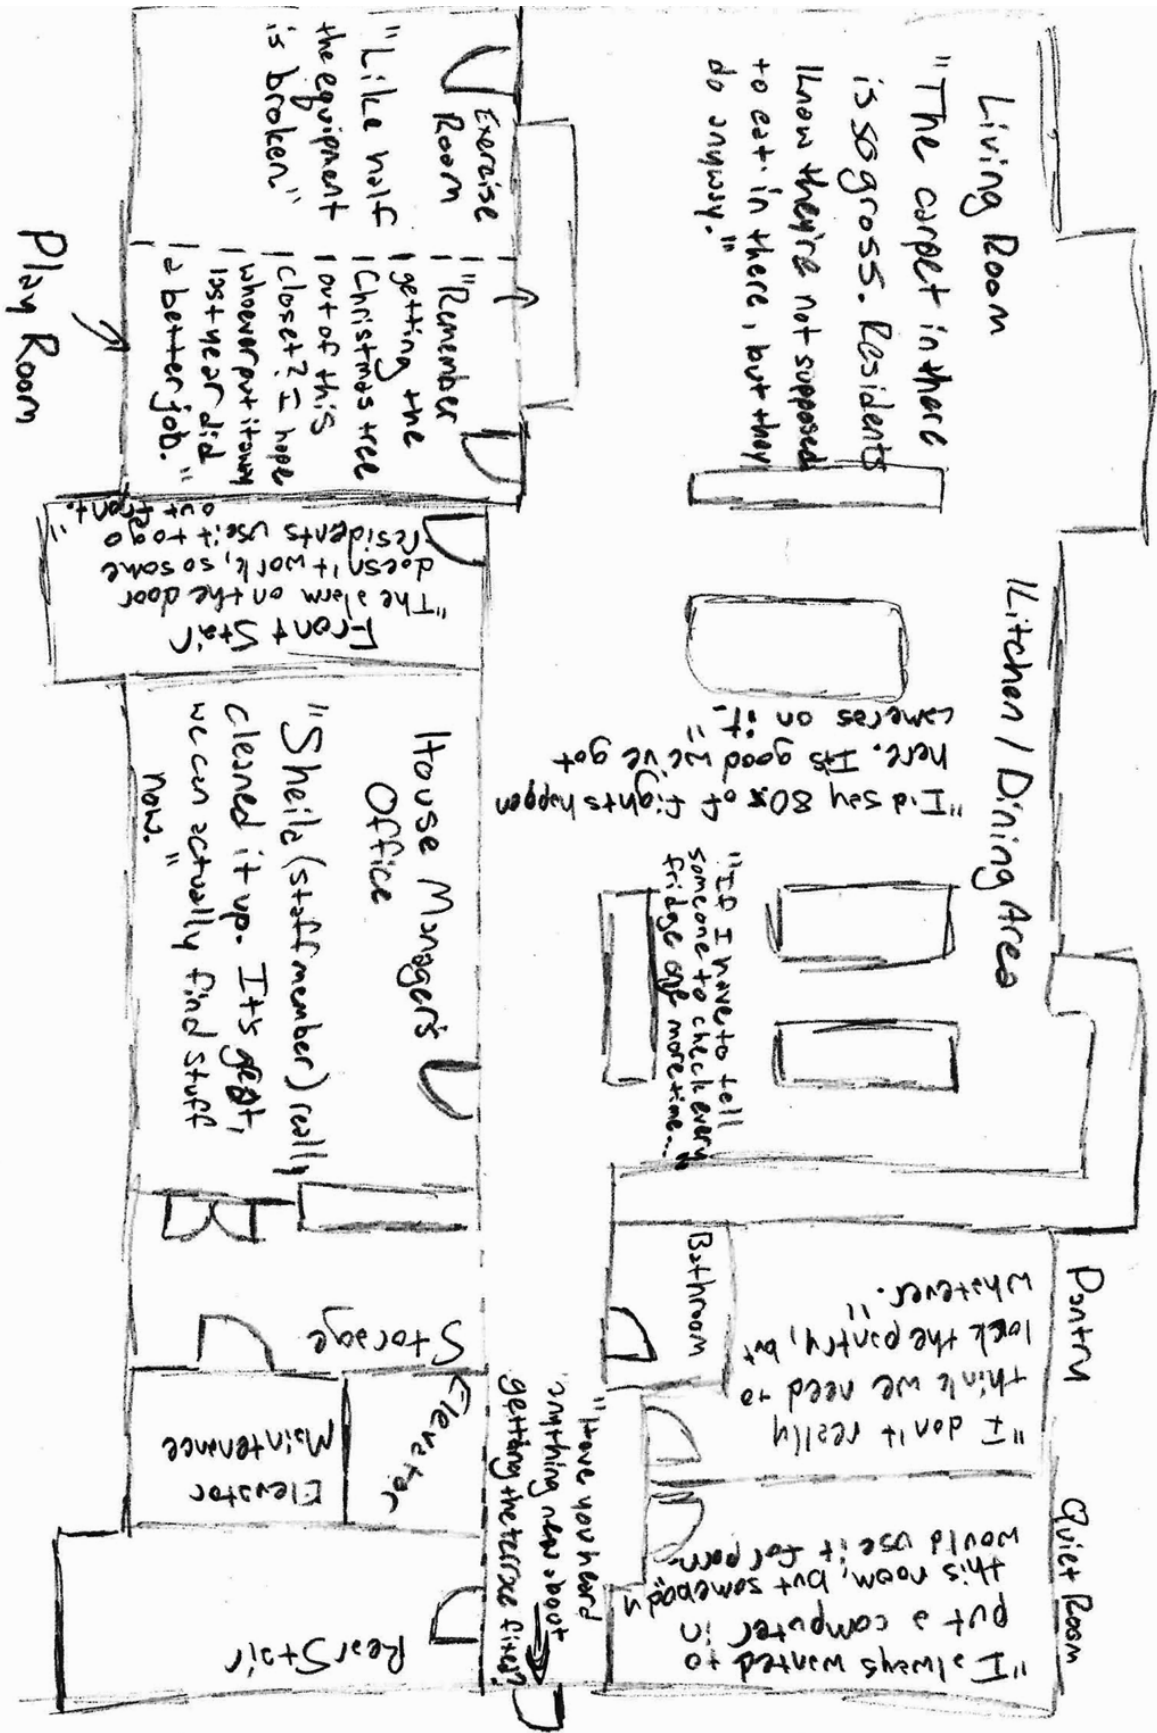 Living Room
"The carpet in there
is so gross. Residents
know they're not supposed
to eat in there, but they
do anyway."
Exercise
Room
"Like half
the equipment
is broken."
"Remember
getting the
Christmas tree
out of this
closet? I hope
whoever put it away
last year did
a better job."
Play Room
Front Stair
"The alarm on the door
doesn't work, so some
residents use it to go
out front."
Kitchen / Dining Area
"I'd say 80% of fights happen
here. It's good we've got
cameras on it."
"If I have to tell
someone to check every
fridge one more time..."
House Manager's
Office
"Sheila (staff member) really
cleaned it up. It's great,
we can actually find stuff
now."
Pantry
"I don't really
think we need to
lock the pantry, but
whatever."
Bathroom
Storage
Elevator
Elevator
Maintenance
"Have you heard
anything new about
getting the terrace fixed?"
Quiet Room
"I always wanted to
put a computer in
this room, but somebody
would use it for porn."
Rear Stair